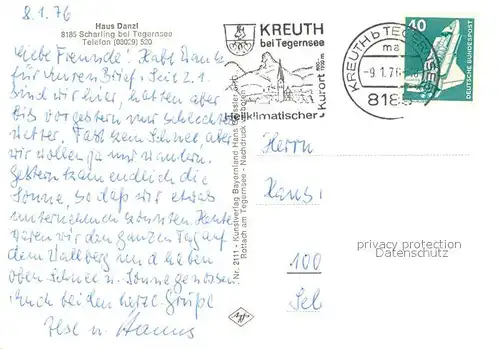 8.1.76
Haus Danzl
8185 Scharling bei Tegernsee
Telefon (08029) 520
Liebe Freunde! Habt Dank
für Euren Brief. Seit 2.1.
sind wir hier, hatten aber
bis vorgestern nur schlechtes
Wetter. Fast kein Schnee, aber
wir wollen ja nur wandern.
Gestern kam endlich die
Sonne, so daß wir etwas
unternehmen konnten. Heute
waren wir den ganzen Tag auf
dem Wallberg und haben
oben Schnee u. Sonne genossen.
Euch beiden herzl. Grüße
Ilse u. Hannes
Nr. 2111 - Kunstverlag Bayernland Hans Bressler oHG.
Rottach am Tegernsee - Nachdruck verboten
Agfa
KREUTH
bei Tegernsee
800-
1700 m
Heilklimatischer Kurort
KREUTH b TEGERNSEE
ma
-9.1.76
8185
40
DEUTSCHE BUNDESPOST
Herrn
Hans
100
Sel
privacy protection
Datenschutz